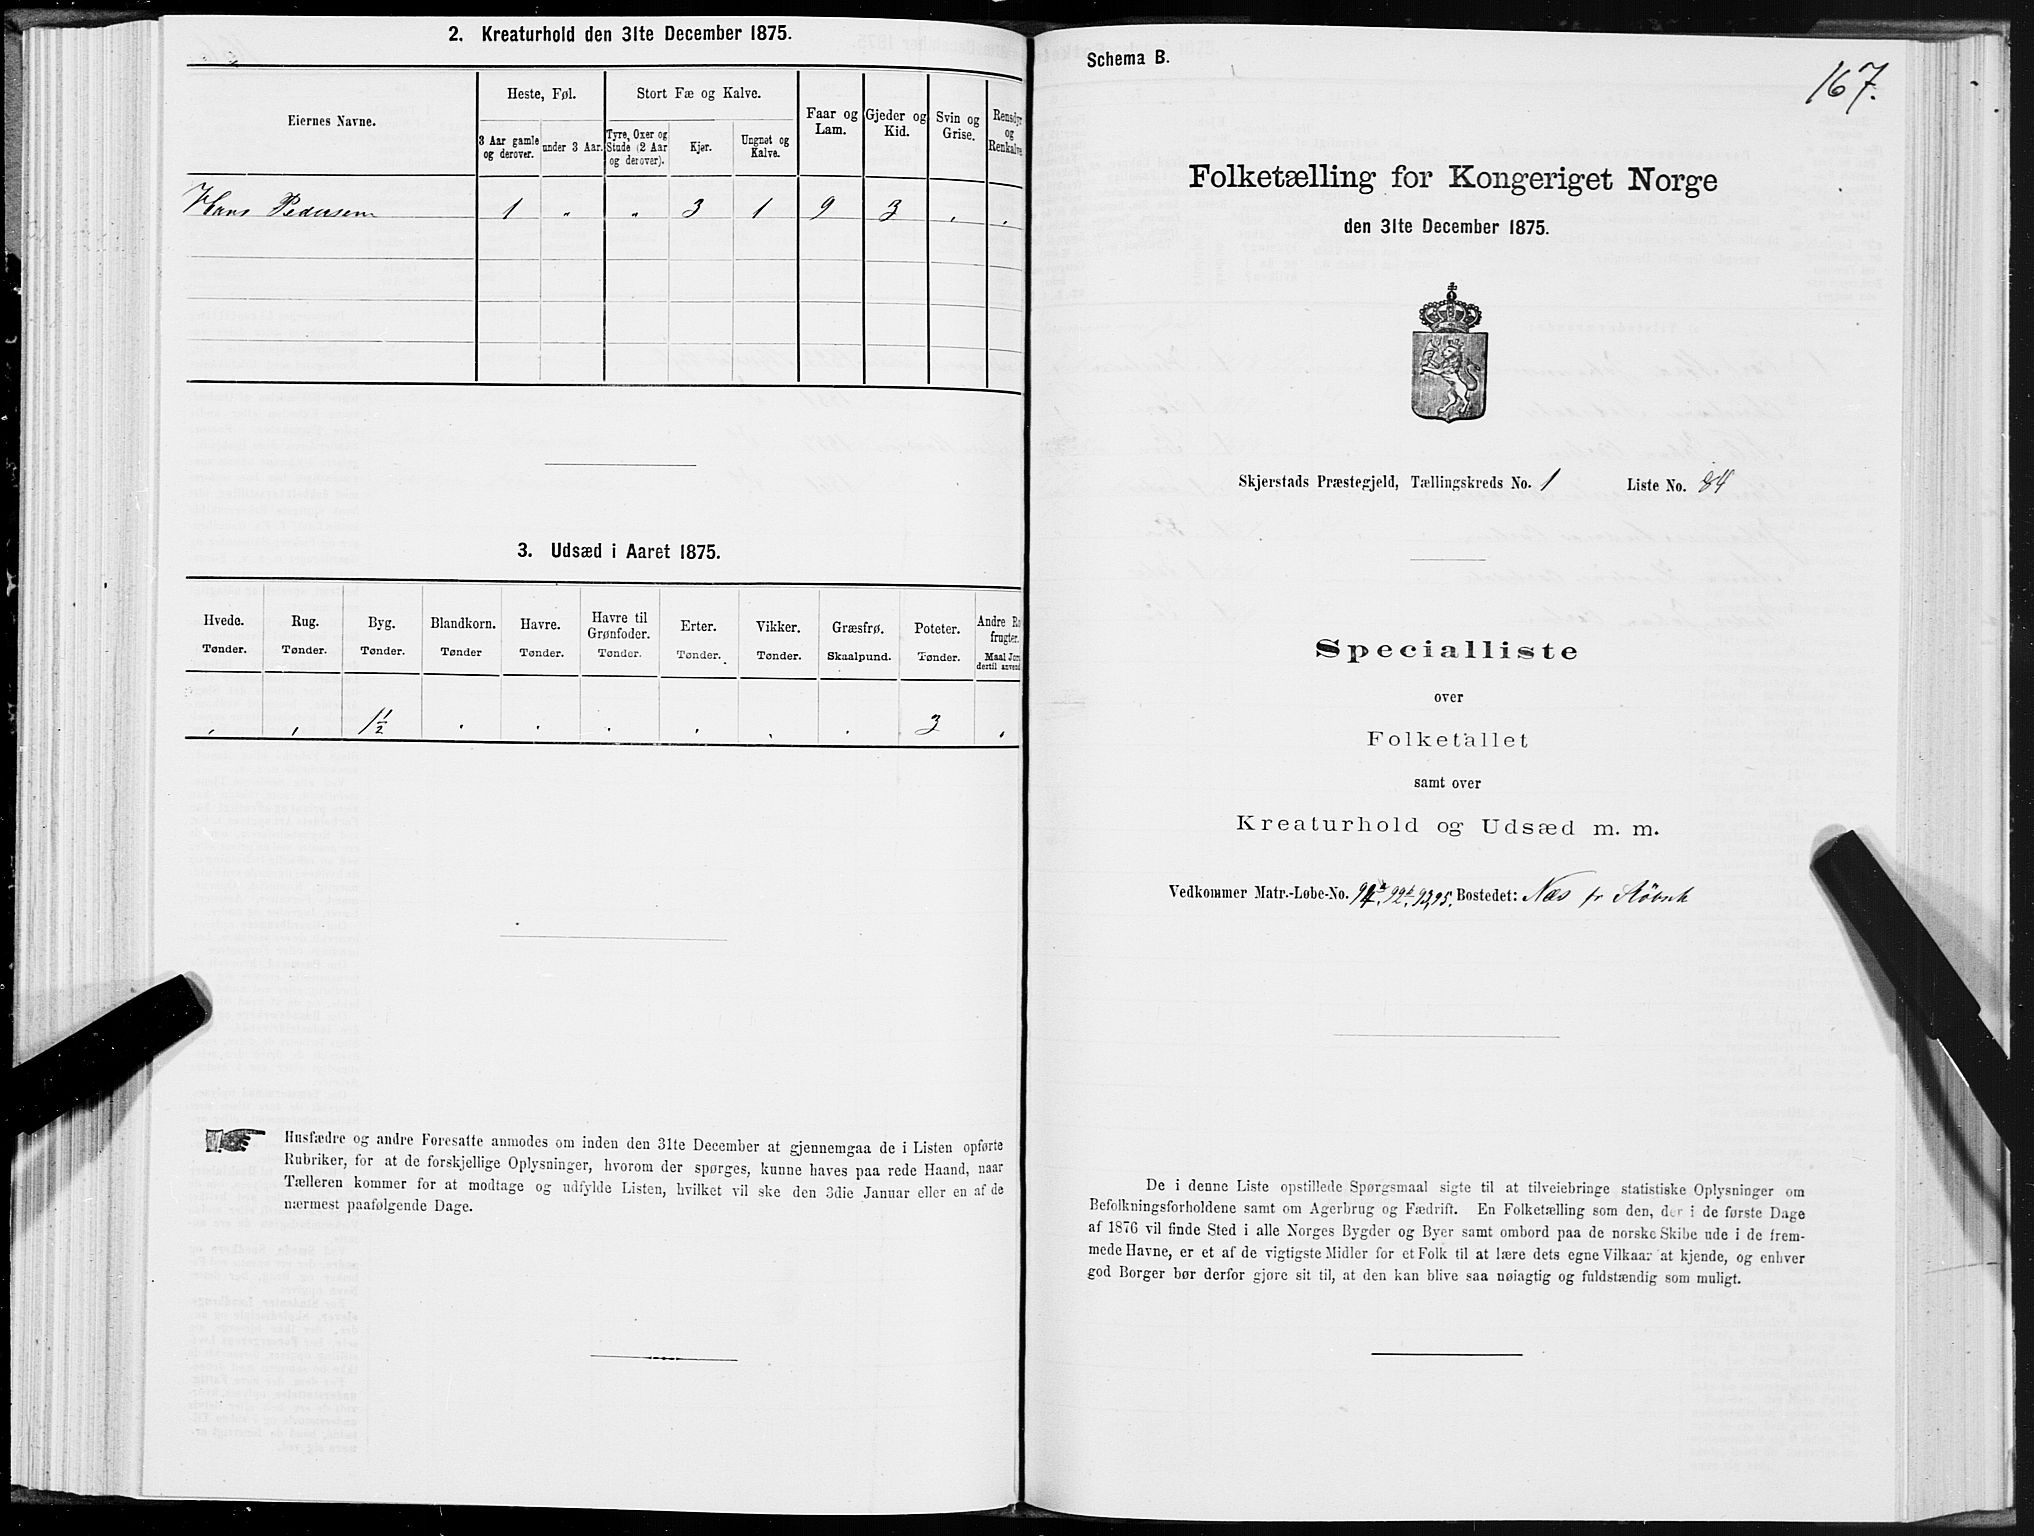 2. Kreaturhold den 31te December 1875.
Eiernes Navne.
Heste, Føl.
Stort Fæ og Kalve.
Faar og Lam.
Gjeder og Kid.
Svin og Grise.
Rensdyr og Renkalve
3 Aar gamle og derover.
under 3 Aar.
Tyre, Oxer og Stude (2 Aar og derover).
Kjør.
Ungnøt og Kalve.
Hans Pedersen 1 " " 3 1 9 3 , ,
3. Udsæd i Aaret 1875.
Hvede. Rug. Byg. Blandkorn. Havre. Havre til Grønfoder. Erter. Vikker. Græsfrø. Poteter. Andre Ro frugter.
Tønder. Tønder. Tønder. Tønder Tønder. Tønder. Tønder. Tønder. Skaalpund. Tønder. Maal Jord dertil anvend
, , 1 1/2 . . . . . . 3 .
Husfædre og andre Foresatte anmodes om inden den 31te December at gjennemgaa de i Listen opførte
Rubriker, for at de forskjellige Oplysninger, hvorom der spørges, kunne haves paa rede Haand, naar
Tælleren kommer for at modtage og udfylde Listen, hvilket vil ske den 3die Januar eller en af de
nærmest paafølgende Dage.
Schema B.
167.
Folketælling for Kongeriget Norge
den 31te December 1875.
Skjerstads Præstegjeld, Tællingskreds No. 1 Liste No. 84
Specialliste
over
Folketallet
samt over
Kreaturhold og Udsæd m. m.
Vedkommer Matr.-Løbe-No. 92b, 93, 95. Bostedet: Næs
De i denne Liste opstillede Spørgsmaal sigte til at tilveiebringe statistiske Oplysninger om
Befolkningsforholdene samt om Agerbrug og Fædrift. En Folketælling som den, der i de første Dage
af 1876 vil finde Sted i alle Norges Bygder og Byer samt ombord paa de norske Skibe ude i de frem-
mede Havne, er et af de vigtigste Midler for et Folk til at lære dets egne Vilkaar at kjende, og enhver
god Borger bør derfor gjøre sit til, at den kan blive saa nøiagtig og fuldstændig som muligt.